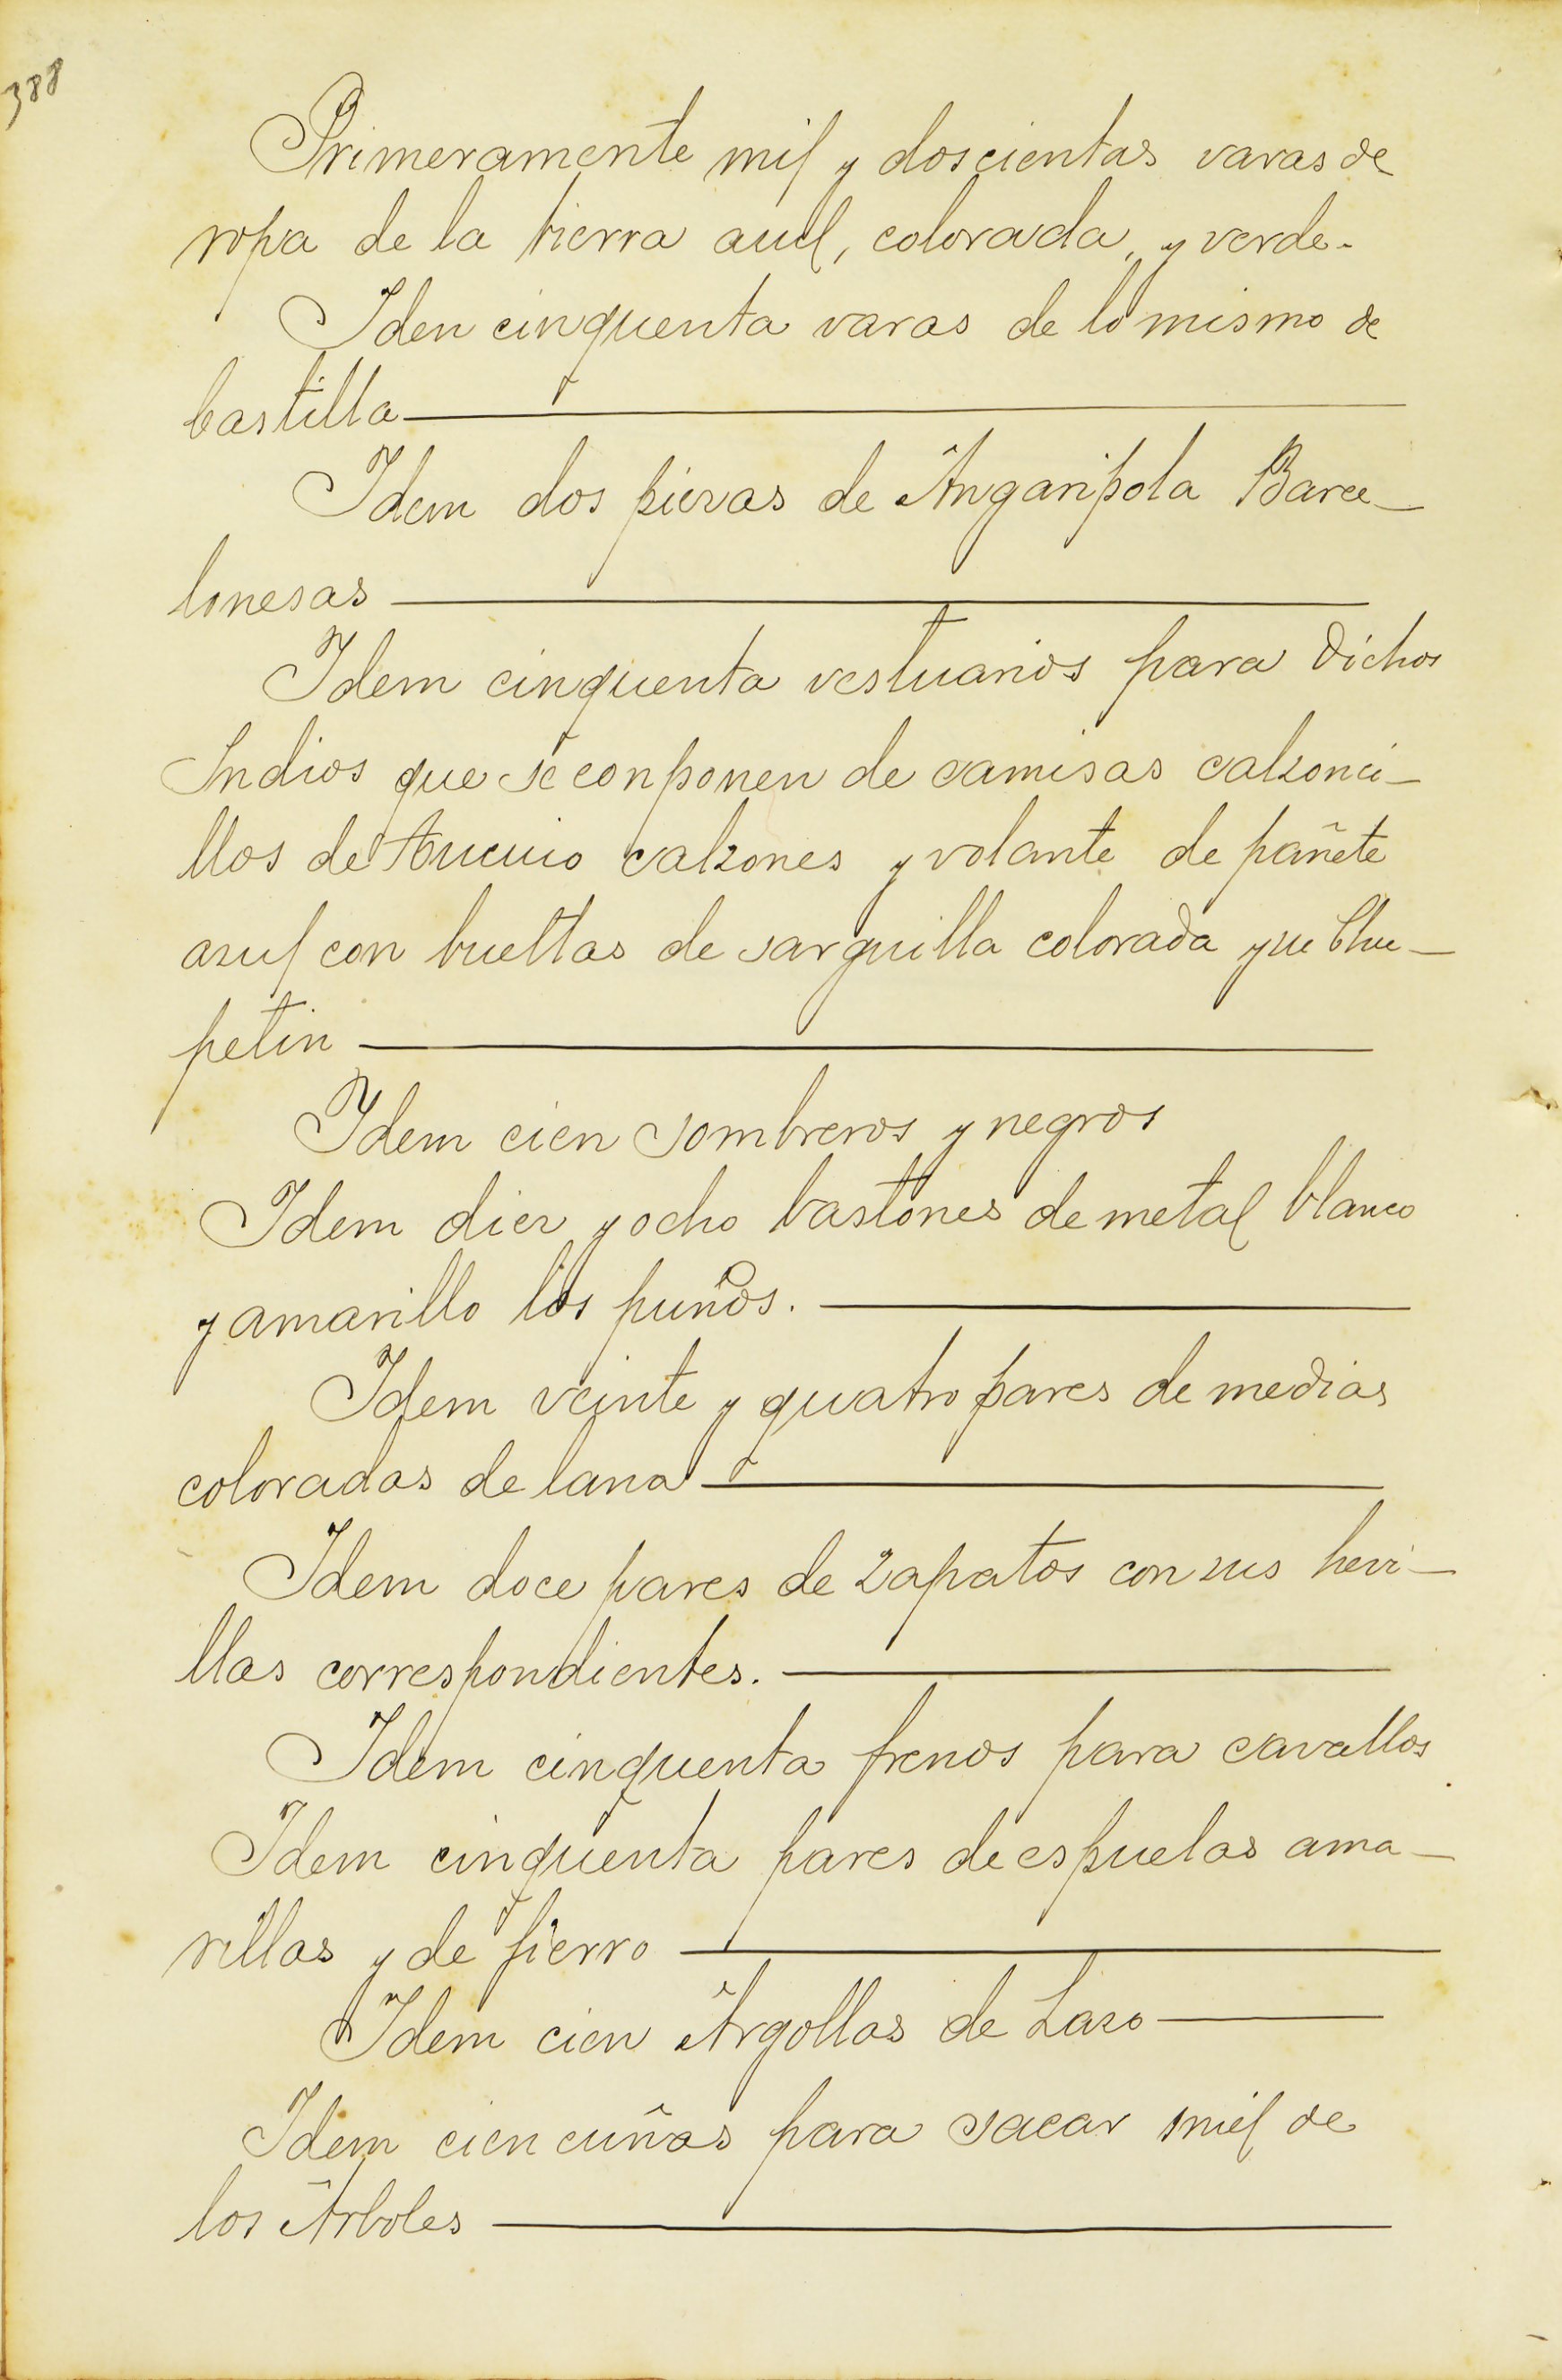 388
Primeramente mil y doscientas varas de
ropa de la tierra auul, colorada, y verde-
Iden cinquenta varas de lo mismo de
bastilla
Idem dos piezas de Angaripola Barce-
lonesas
Idem cinquenta vestuarios para dichos
Indios que se conponen de camisas calzonci-
llos de tucuio calzones y volante de pañete
azul con bueltas de sarguilla colorada y su Chu-
petin
Idem cien sombreros y negros
Idem diez y ocho bastones de metal blanco
y amarillo los puños.
Idem veinte y quatro pares de medias
coloradas de lana
Idem doce pares de zapatos con sus hevi-
llas correspondientes.
Idem cinquenta frenos para cavallos
Idem cinquenta pares de espuelas ama-
rillas y de fierro
Idem cien Argollas de Lazo
Idem cien cuñas para sacar miel de
los Arboles